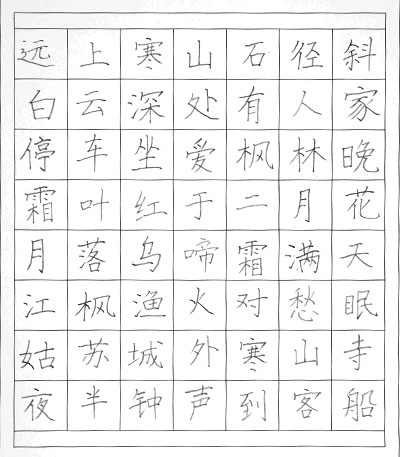 远上寒山石径斜
白云深处有人家
停车坐爱枫林晚
霜叶红于二月花
月落乌啼霜满天
江枫渔火对愁眠
姑苏城外寒山寺
夜半钟声到客船